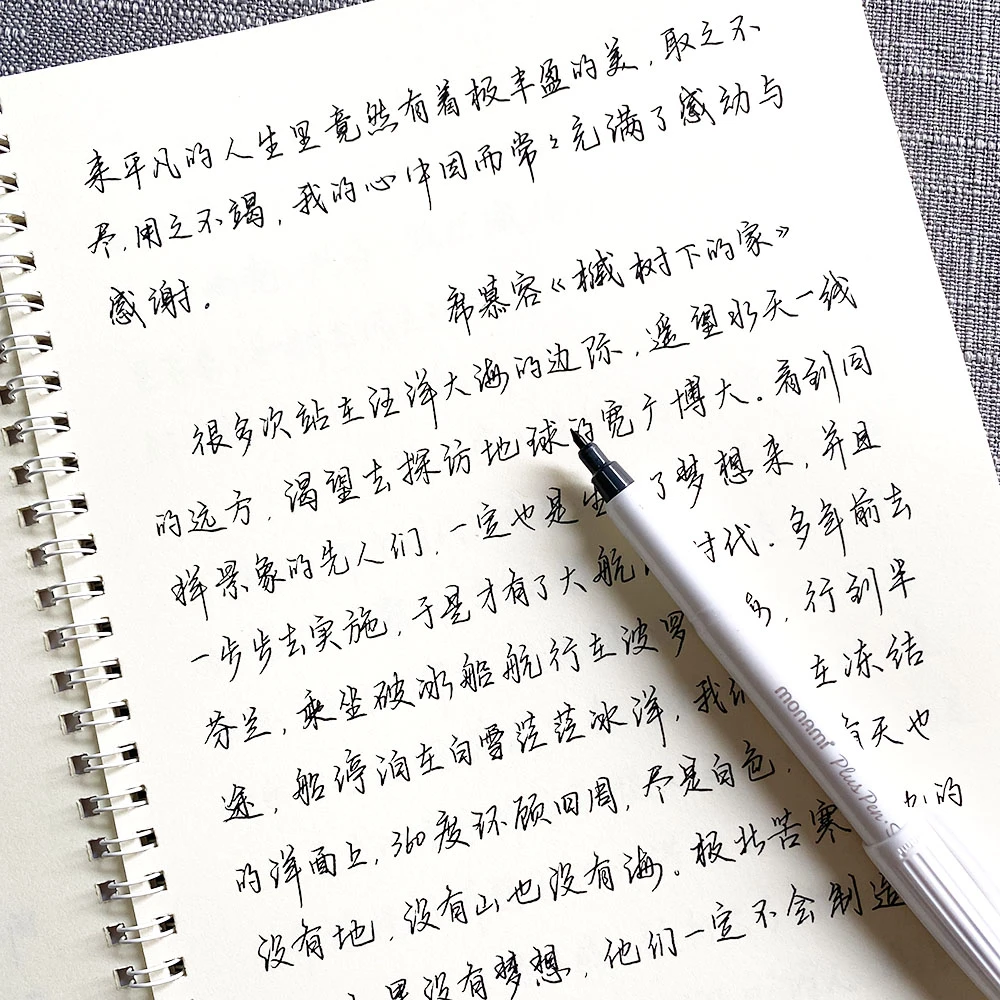 来平凡的人生里竟然有着极丰盈的美，取之不
尽，用之不竭，我的心中因而常々充满了感动与
感谢。
席慕容《槭树下的家》
很多次站在汪洋大海的边际，遥望水天一线
的远方，渴望去探访地球的宽广博大。看到同
样景象的先人们，一定也是生了梦想来，并且
一步步去实施，于是才有了大航时代。多年前去
芬兰，乘坐破冰船航行在波罗，行到半
途，船停泊在白雪茫茫冰洋，我们在冻结
的洋面上，360度环顾四周，尽是白色，天也
没有地，没有山也没有海。极北苦寒的
里没有梦想，他们一定不会制造
monami Plus Pen